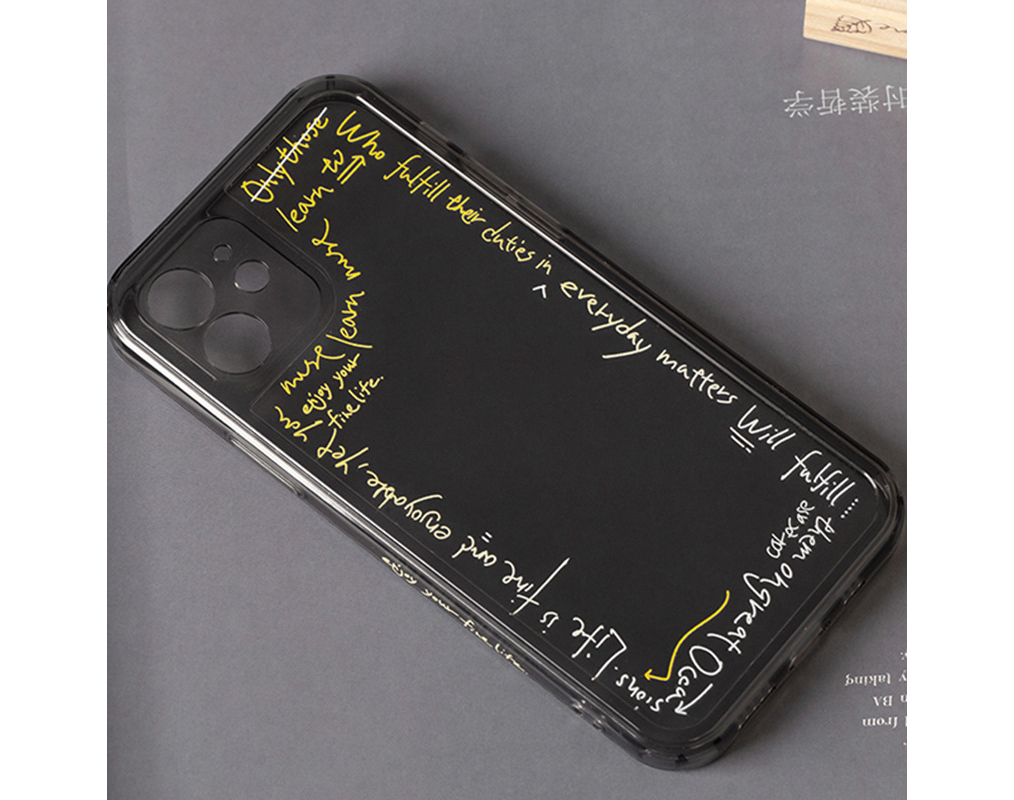 Only those
Who fulfill their duties in everyday matters Will fulfill....
them on great Occa
sions. Life is fine and enjoyable, yet you
must learn
learn to
enjoy your
fine life.
cat & case
enjoy your fine life.
时装哲学
y taking
n BA
d from